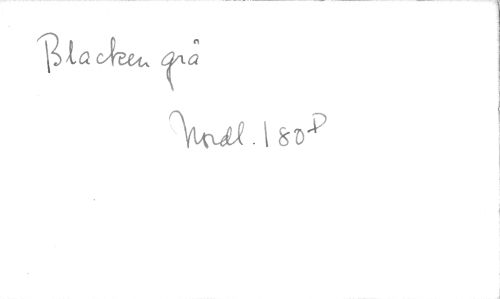 Blacken grå
Nordl. 180D